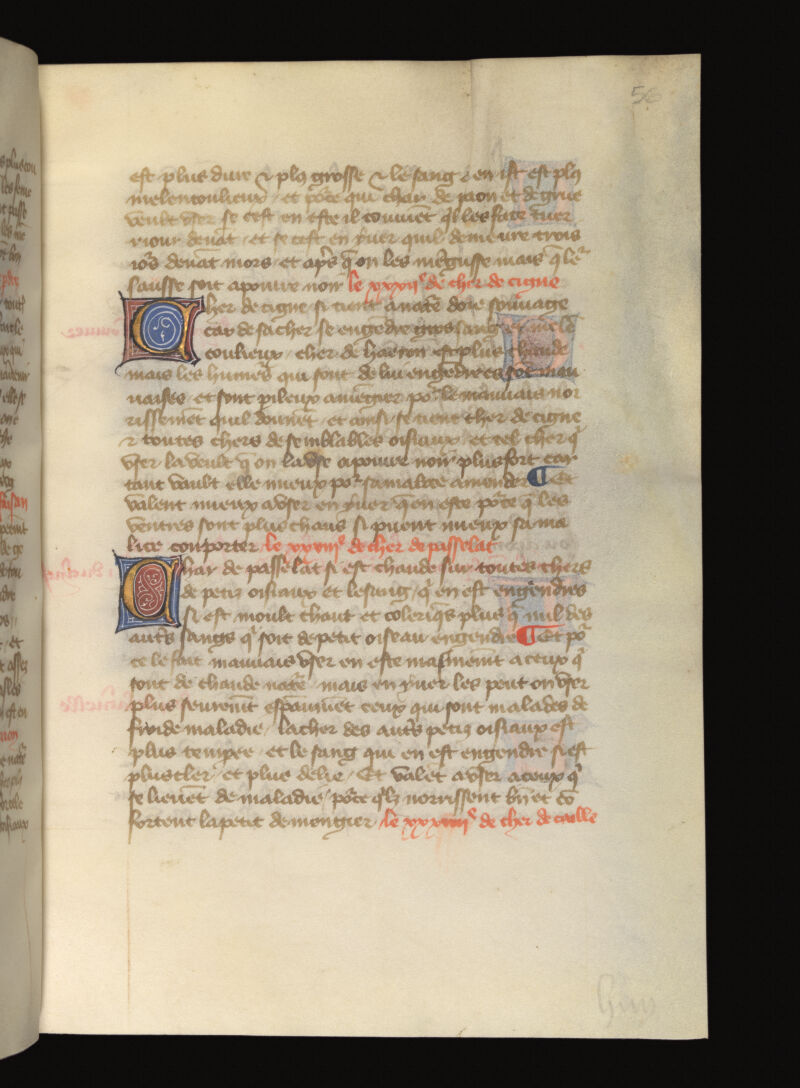 56
est plus dure ⁊ plꝰ grosse ⁊ le sang ⁊ en ist est plꝰ
melencoulieux / et põce qui char de paon et de grue
veult user se cest en este il couuiēt qľ les face tuer
i iour deuāt / et se cest en yuer quil demeure trois
iors deuāt mors / et apres q̃ on les mēgusse mais q̃ le
sausse soit a poiure noir le xxxii de cher de cigne
Cher de cigne si tient a natẽ doie sauuage
car de sa cher se engēdre gros sang et melē
coulieux / cher de hairon est plus chaude
mais les humeᵉs qui sont de lui engēdrees sõt mau
uaises / et sont pileux a mēgier poʳ le mauuais nor
rissement quil donnēt / et ainsi se tient cher de cigne
⁊ toutes chers de semblables oisiaux / et tel cher q̃
user la veult q̃ on la use a poiure noir plus fort car
tant vault elle mieux poʳ sa malice amender ¶ Et
valent mieux a user en yuer q̃ en este põce q̃ les
ventres sont plus chaus si puent mieux sa ma
lice conporter le xxxiii de cher de passelat
Char de passelat si est chaude sur toutes chers
de petis oisiaux et le sang q̃ en est engendres
si est moult chaut et coleriqs plus q̃ nul des
autʳs sangs q̃ soit de petit oiseau engendre ¶ Et poʳ
ce le fait mauuais user en este maismemēt a ceux q̃
sont de chaude natẽ mais en yuer les peut on user
plus seuremēt espāumēt ceux qui sont malades de
froide maladie / la cher des autʳs petis oisiaux est
plus tempree / et le sang qui en est engendre si est
plus cler / et plus delie / Et valēt a user a ceux q̃
se lieuēt de maladie / põce qľz norrissent bñ et cō
fortent lapetit de mengier le xxxiiii de cher de caille